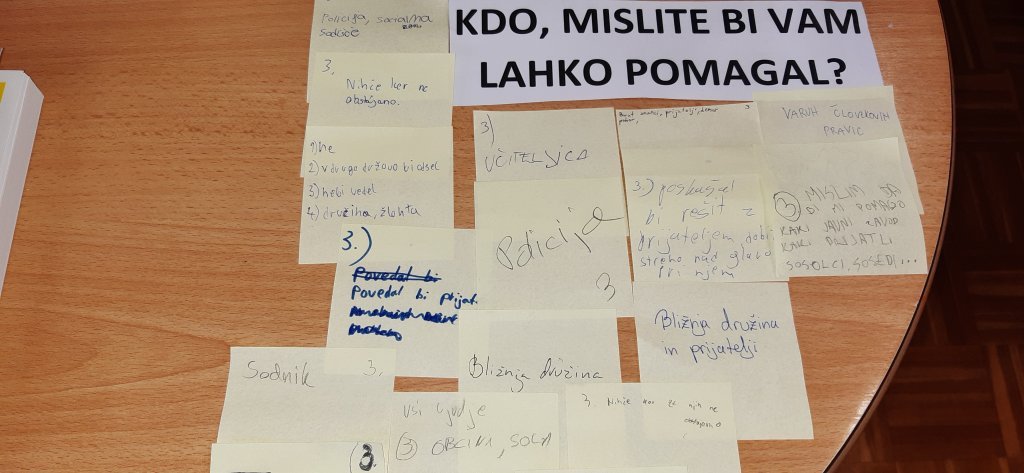 KDO, MISLITE BI VAM
LAHKO POMAGAL?
Policija, socialna
sodišče
3.
Nihče ker ne
obstajamo.
1) ne
2) v drugo državo bi odšel
3) nebi vedel
4) družina, žlahta
3)
UČITELJICA
3.
prijatelji,
VARUH ČLOVEKOVIH
PRAVIC
3.) poskušal
bi rešit z
prijateljem, dobi
streho nad glavo
pri njem
3
MISLIM DA
BI MI POMAGO
KAKI JAVNI ZAVOD
KAKI PRIJATLI
SOSOLCI, SOSEDI...
3.)
Povedal bi
Povedal bi prijat.
Policija
3
Bližnja družina
in prijatelji
Bližnja družina
Sodnik 3.
vsi ljudje
3 OBČINA, ŠOLA
3. Nihče ker za njih ne
obstajamo
3.